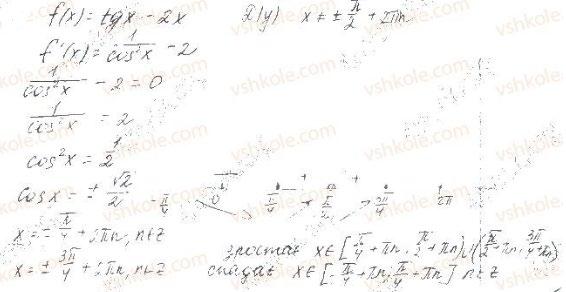 f(x) = tgx − 2x    D(y)  x ≠ ± π/2 + 2πn
f'(x) = 1/cos²x − 2
1/cos²x − 2 = 0
1/cos²x = 2
cos²x = 1/2
cosx = ± √2/2    −π/4    0    π/4    π/2    3π/4    2π
x = ± π/4 + 2πn, n∈Z
зростає x∈[π/4 + πn; π/2 + πn)∪(π/2 + πn; 3π/4 + πn]
x = ± 3π/4 + 2πn, n∈Z    спадає x∈[−π/4 + πn; π/4 + πn] n∈Z
vshkole.com